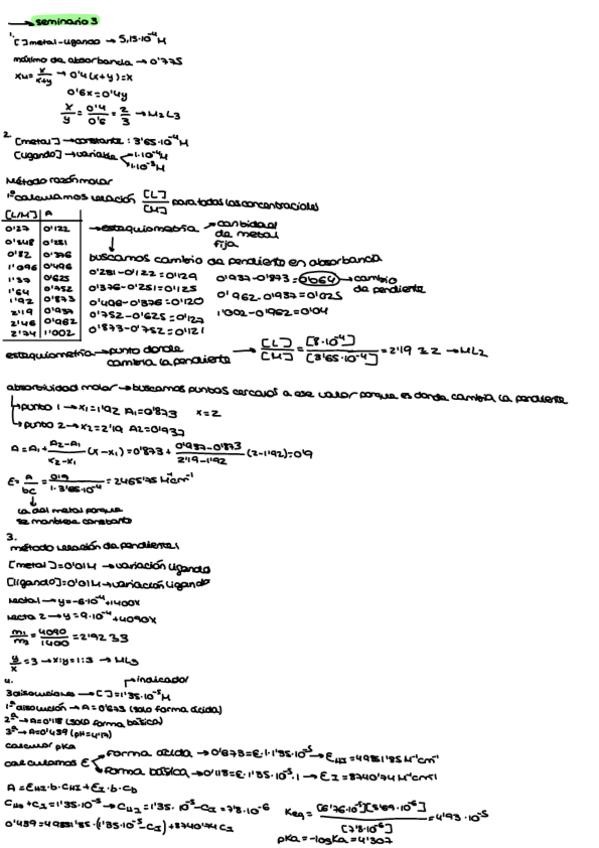 → seminario 3
1. [ ] metal-ligando → 5,15·10⁻⁴M
máximo de absorbancia → 0'775
XM = x/x+y → 0'4(x+y)=x
0'6x=0'4y
x/y = 0'4/0'6 = 2/3 → M2L3
2. [metal] → constante: 3'65·10⁻⁴M
[ligando] → variable 1·10⁻⁴M
1·10⁻³M
método razón molar
1º calculamos relación [L]/[M] para todas las concentraciones
[L/M] A
0'27 0'122
0'548 0'251
0'82 0'376
1'096 0'496
1'37 0'625
1'64 0'752
1'92 0'873
2'19 0'937
2'46 0'962
2'74 1'002
→ estequiometría → cantidad de metal fija
buscamos cambio de pendiente en absorbancia
0'251-0'122=0'129 0'937-0'873=0'064 → cambio de pendiente
0'376-0'251=0'125 0'962-0'937=0'025
0'496-0'376=0'120 1'002-0'962=0'04
0'752-0'625=0'127
0'873-0'752=0'121
estequiometría → punto donde cambia la pendiente → [L]/[M] = [8·10⁻⁴]/[3'65·10⁻⁴] = 2'19 ≃ 2 → ML2
absortividad molar → buscamos puntos cercanos a ese valor porque es donde cambia la pendiente
punto 1 → x1=1'92 A1=0'873 x=2
punto 2 → x2=2'19 A2=0'937
A = A1 + A2-A1/x2-x1 (x-x1) = 0'873 + 0'937-0'873/2'19-1'92 (2-1'92)=0'9
ε = A/bc = 0'9/1·3'65·10⁻⁴ = 2465'75 M⁻¹cm⁻¹
la del metal porque se mantiene constante
3.
método relación de pendientes
[metal]=0'01M → variación ligando
[ligando]=0'01M → variación ligando
recta 1 → y=-6·10⁻⁴+1400x
recta 2 → y=9·10⁻⁴+4090x
m1/m2 = 4090/1400 = 2'92 ≃ 3
y/x = 3 → x:y=1:3 → ML3
4.
indicador
3 disoluciones → [ ]=1'35·10⁻⁵M
1ª disolución → A=0'673 (solo forma ácida)
2ª → A=0'118 (solo forma básica)
3ª → A=0'439 (pH=4'17)
calcular pKa
calculamos ε forma ácida → 0'673=ε·1·1'35·10⁻⁵ → εHI = 49851'85 M⁻¹cm⁻¹
forma básica → 0'118=ε·1'35·10⁻⁵·1 → εI = 8740'74 M⁻¹cm⁻¹
A = εHI·b·CHI + εI·b·Cb
CHI+CI=1'35·10⁻⁵ → CHI=1'35·10⁻⁵-CI=7'8·10⁻⁶
0'439=49851'85·(1'35·10⁻⁵-CI)+8740'74CI
Keq = [6'76·10⁻⁵][5'69·10⁻⁶]/[7'8·10⁻⁶] = 4'93·10⁻⁵
pKa = -logKa = 4'307